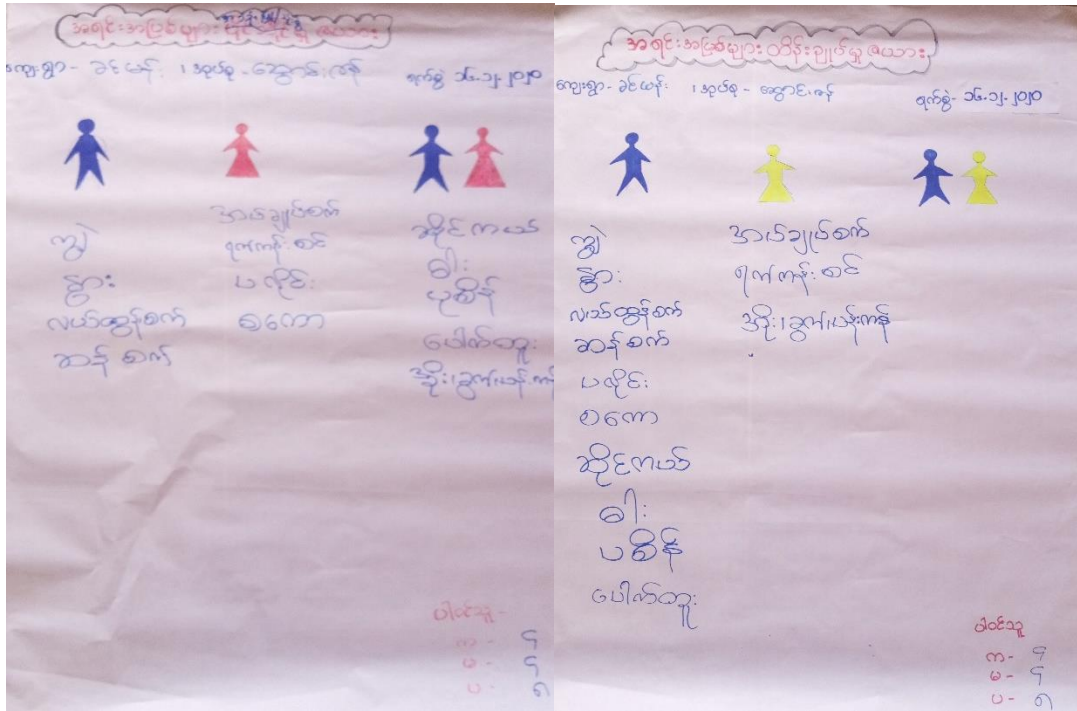 အရင်းအမြစ်များ
ကျေးရွာ- ခင်မန်း ၊ အုပ်စု - ဆွောင်းဇန်
ရက်စွဲ ၁၆.၁၂.၂၀၂၀
ကျွဲ
နွား
လယ်ထွန်စက်
ဆန်စက်
အပ်ချုပ်စက်
ရက်ကန်းစင်
ပလိုင်း
စကော
ဆိုင်ကယ်
ဓါး
ပုဆိန်
ပေါက်တူး
အိုး၊ခွက်၊ပန်းကန်
ပါဝင်သူ -
က - ၄
မ - ၄
ပ - ၈
အရင်းအမြစ်များ ထိန်းချုပ်မှု ဇယား
ကျေးရွာ- ခင်မန်း ၊ အုပ်စု - ဆွောင်းဇန်
ရက်စွဲ- ၁၆.၁၂.၂၀၂၀
ကျွဲ
နွား
လယ်ထွန်စက်
ဆန်စက်
ပလိုင်း
စကော
ဆိုင်ကယ်
ဓါး
ပုဆိန်
ပေါက်တူး
အပ်ချုပ်စက်
ရက်ကန်းစင်
အိုး၊ခွက်၊ပန်းကန်
ပါဝင်သူ
က- ၄
မ- ၄
ပ- ၈